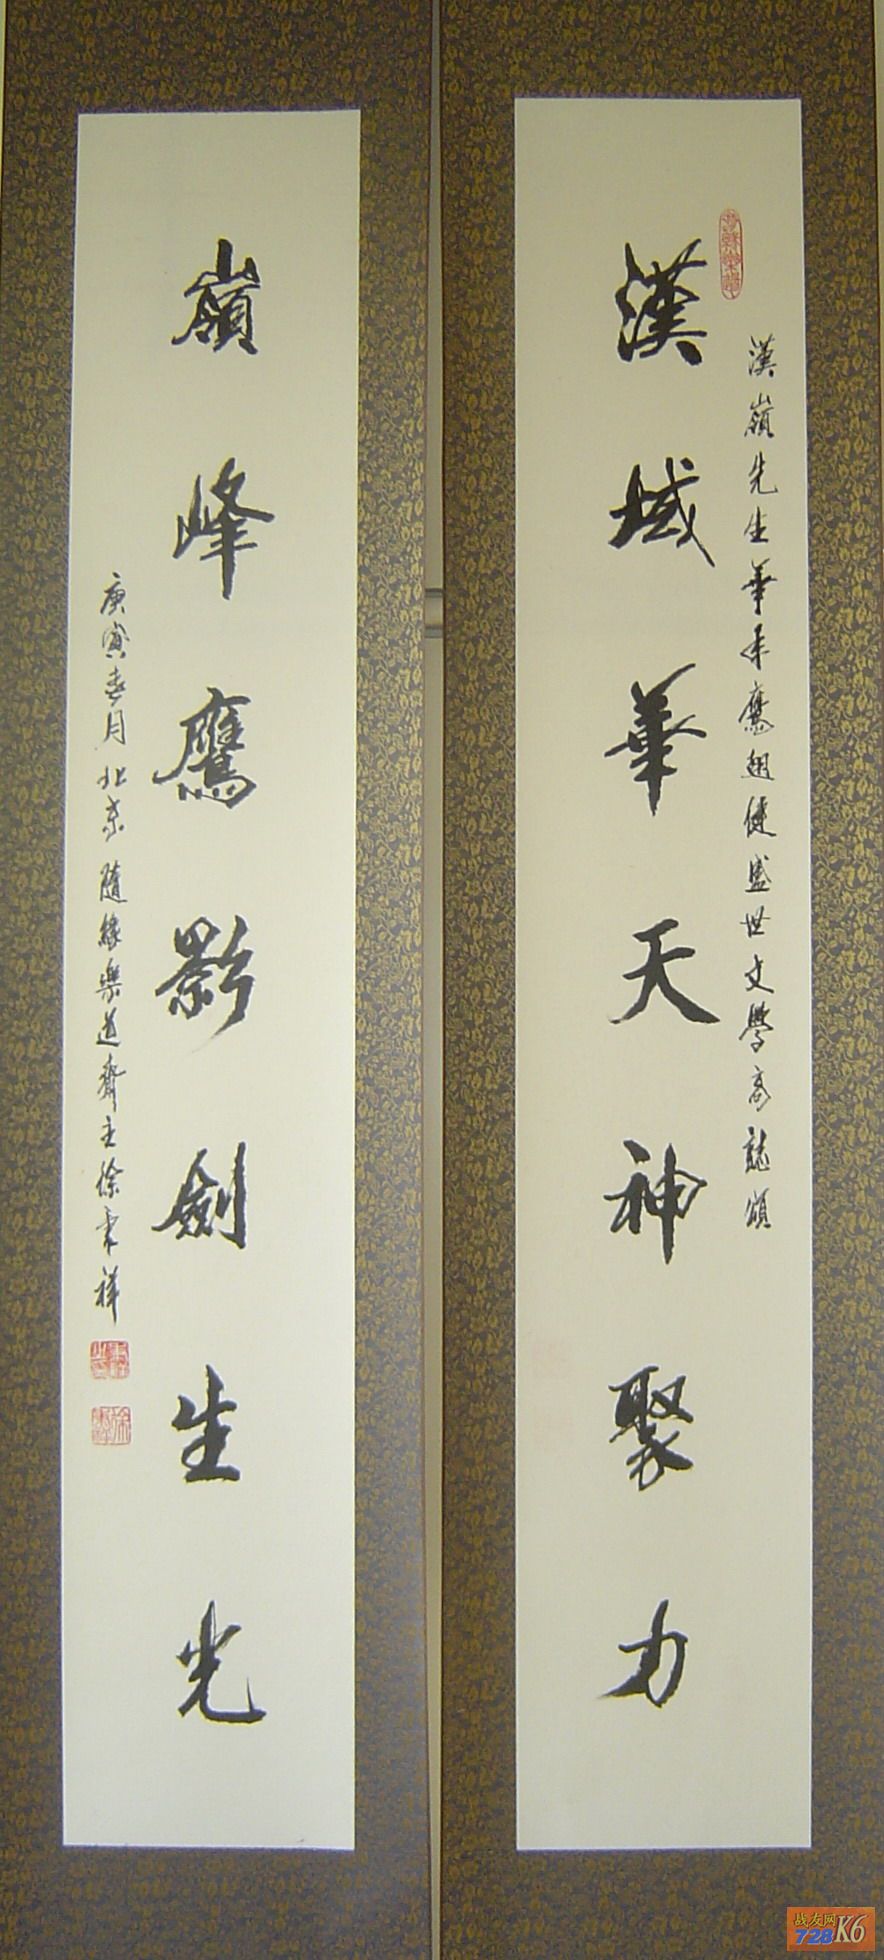 漢嶺先生華年鷹翅健盛世文學高誌頌
漢域華天神聚力
嶺峰鷹影劍生光
庚寅春月北京隨緣樂道齋主徐秉祥
战友网
728K6